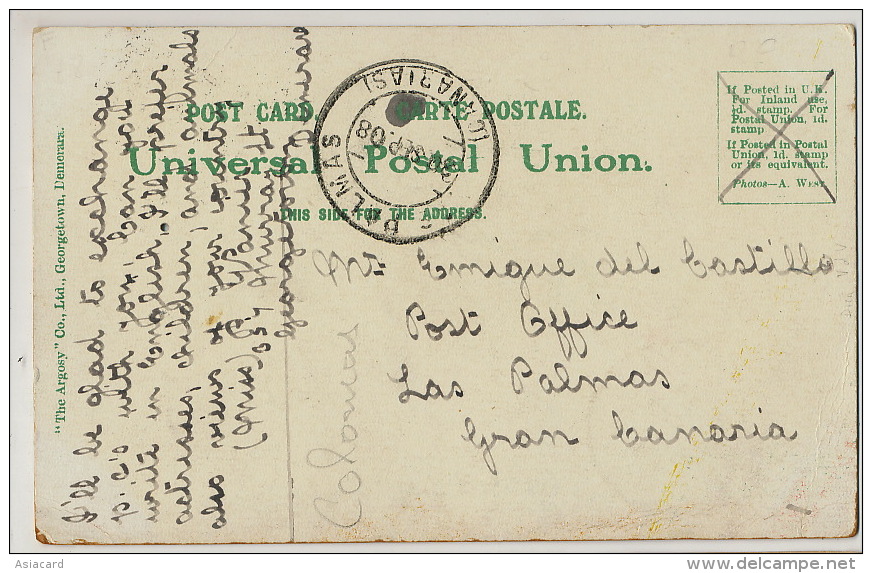 POST CARD. CARTE POSTALE.
Universal Postal Union.
THIS SIDE FOR THE ADDRESS.
If Posted in U.K.
For Inland use,
½d. stamp. For
Postal Union, 1d.
stamp
If Posted in Postal
Union, 1d. stamp
or its equivalent.
Photos—A. West
PALMAS
(CANARIAS)
SEP 08
"The Argosy" Co., Ltd., Georgetown, Demerara.
I'll be glad to exchange
p.c's with you. Can you
write in English. I'll prefer
actresses, children, and animals
also views of your country
(Miss)
Murray St
Georgetown Demerara
Mr Enrique del Castillo
Post Office
Las Palmas
Gran Canaria
Colonias
Asiacard
www.delcampe.net